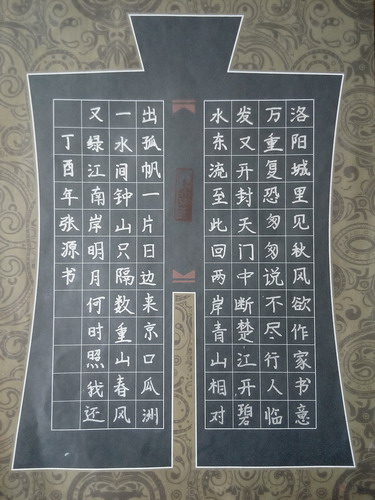 洛阳城里见秋风欲作家书意
万重复恐匆匆说不尽行人临
发又开封天门中断楚江开碧
水东流至此回两岸青山相对
出孤帆一片日边来京口瓜洲
一水间钟山只隔数重山春风
又绿江南岸明月何时照我还
丁酉年张源书